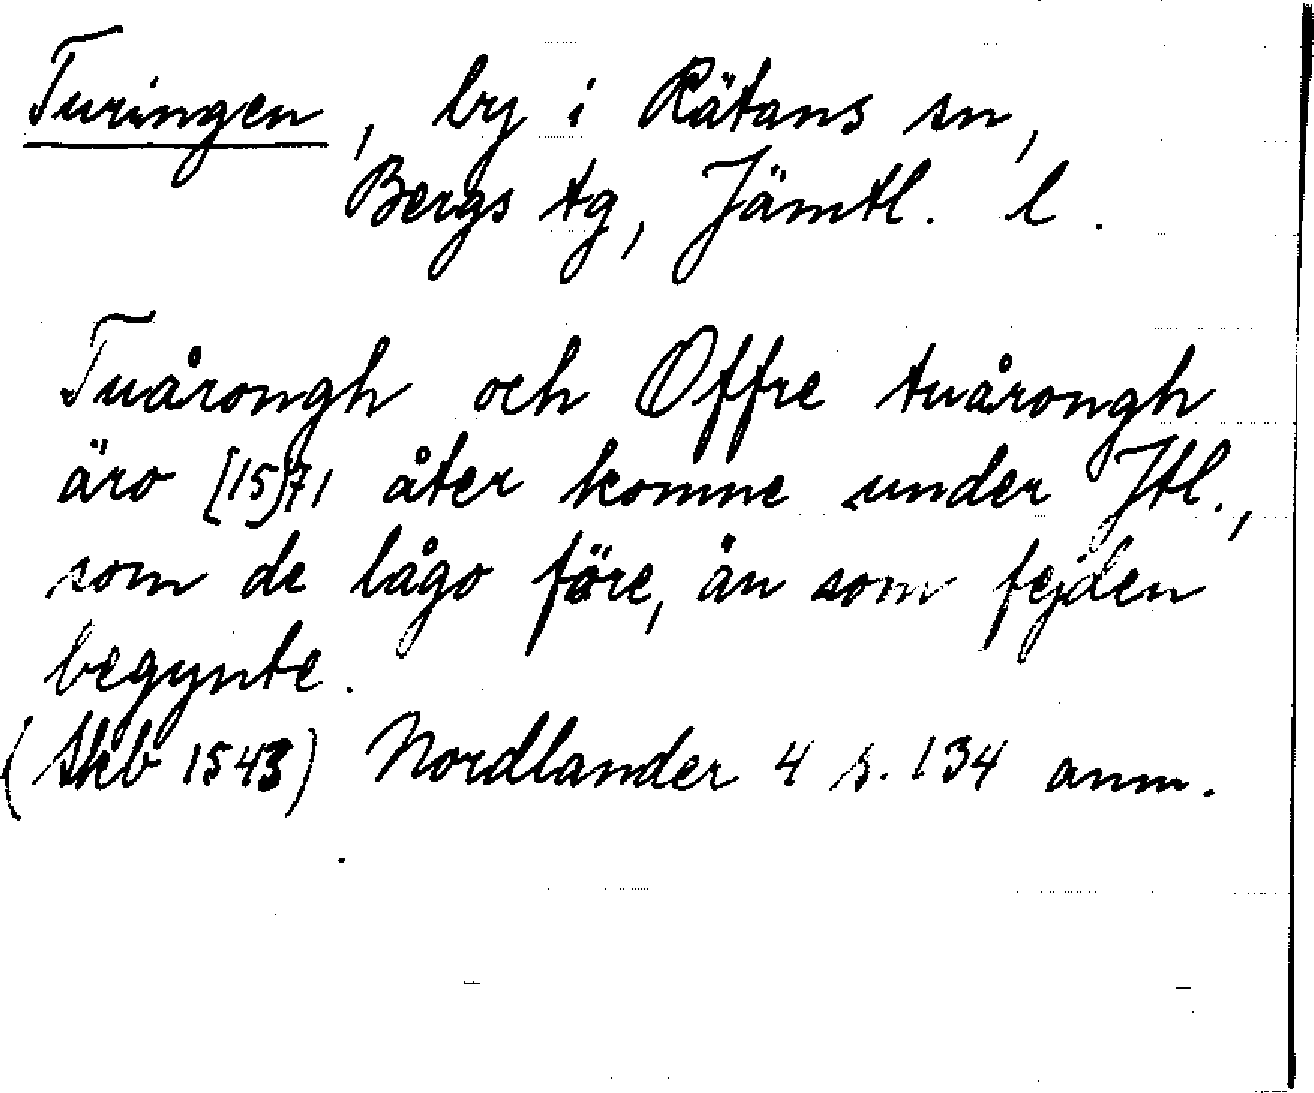 Turingen, by i Rätans sn,
Bergs tg, Jämtl. l.
Tuårongh och Offre tuårongh
äro [15]71 åter komne under Jtl.,
som de lågo före, än som fejden
begynte.
(Skb 1543) Nordlander 4 s. 134 anm.